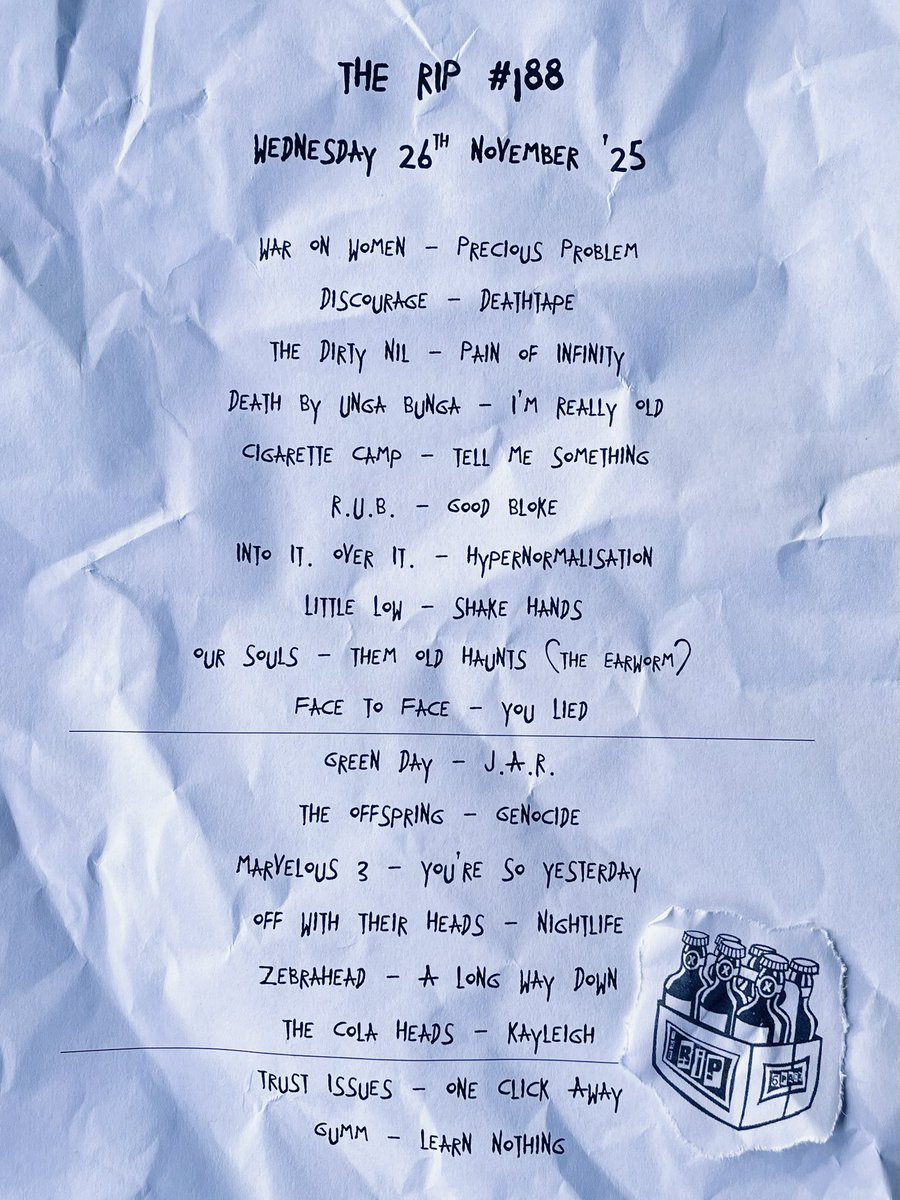 THE RIP #188
WEDNESDAY 26TH NOVEMBER '25
WAR ON WOMEN – PRECIOUS PROBLEM
DISCOURAGE – DEATHTAPE
THE DIRTY NIL – PAIN OF INFINITY
DEATH BY UNGA BUNGA – I'M REALLY OLD
CIGARETTE CAMP – TELL ME SOMETHING
R.U.B. – GOOD BLOKE
INTO IT. OVER IT. – HYPERNORMALISATION
LITTLE LOW – SHAKE HANDS
OUR SOULS – THEM OLD HAUNTS (THE EARWORM)
FACE TO FACE – YOU LIED
GREEN DAY – J.A.R.
THE OFFSPRING – GENOCIDE
MARVELOUS 3 – YOU'RE SO YESTERDAY
OFF WITH THEIR HEADS – NIGHTLIFE
ZEBRAHEAD – A LONG WAY DOWN
THE COLA HEADS – KAYLEIGH
TRUST ISSUES – ONE CLICK AWAY
GUMM – LEARN NOTHING
RIP